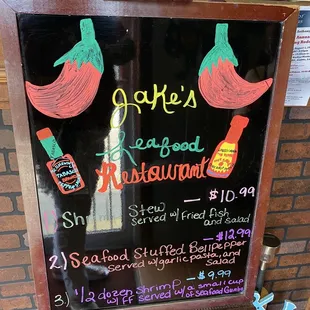 Jake's
Seafood
Restaurant
TABASCO
- $10.99
1) Shrimp Stew
served w/ fried fish
and salad
- $12.99
2) Seafood Stuffed Bellpepper
served w/garlic pasta, and
Salad
- $9.99
3) 1/2 dozen shrimp
w/ FF served w/a small cup
of Seafood Gumbo